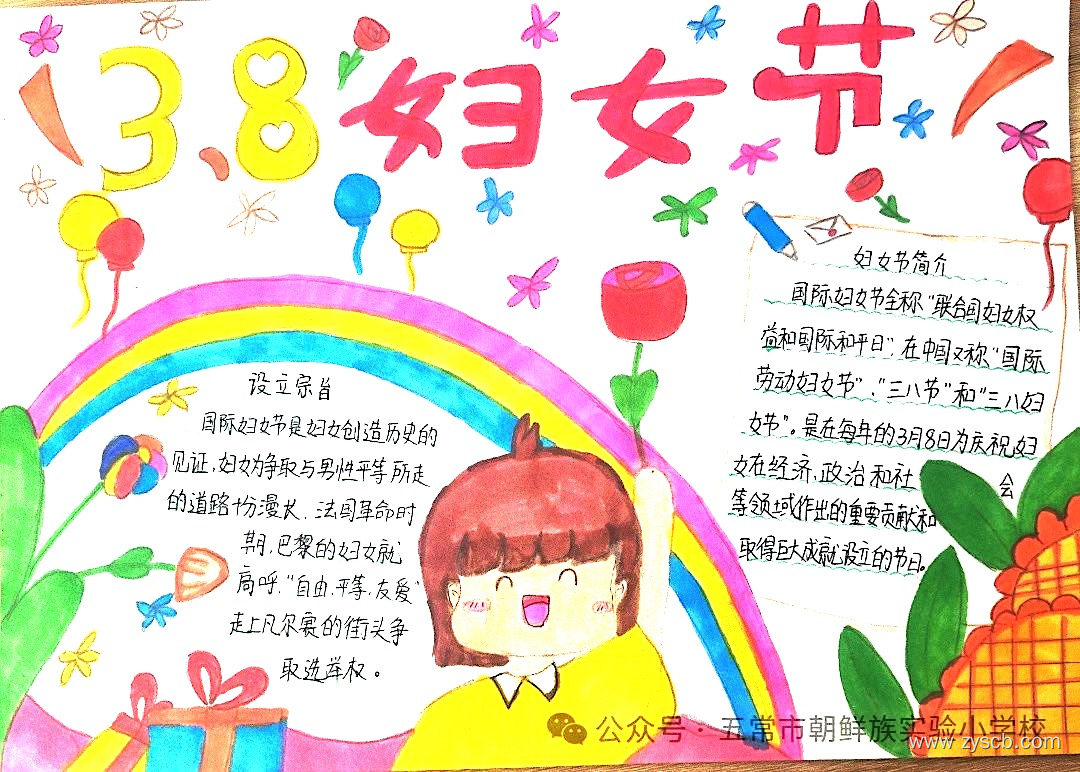 3、8妇女节
妇女节简介
国际妇女节全称“联合国妇女权
益和国际和平日”，在中国又称“国际
劳动妇女节”、“三八节”和“三八妇
女节”。是在每年的3月8日为庆祝妇
女在经济，政治和社会
等领域作出的重要贡献和
取得巨大成就设立的节日。
设立宗旨
国际妇女节是妇女创造历史的
见证，妇女为争取与男性平等所走
的道路十份漫长、法国革命时
期，巴黎的妇女就
高呼，“自由，平等，友爱”
走上凡尔赛的街头争
取选举权。
公众号·五常市朝鲜族实验小学校
www.zyscb.com